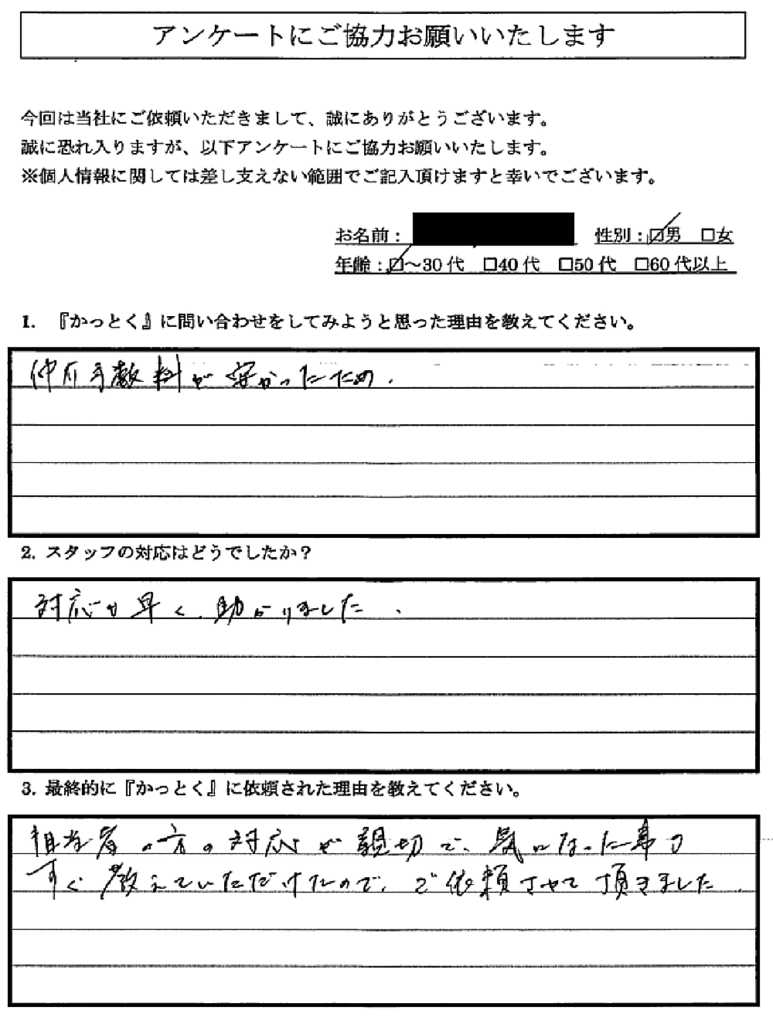 アンケートにご協力お願いいたします
今回は当社にご依頼いただきまして、誠にありがとうございます。
誠に恐れ入りますが、以下アンケートにご協力お願いいたします。
※個人情報に関しては差し支えない範囲でご記入頂けますと幸いでございます。
お名前： 性別：☑男 □女
年齢：☑～30代 □40代 □50代 □60代以上
1. 『かっとく』に問い合わせをしてみようと思った理由を教えてください。
仲介手数料が安かったため.
2. スタッフの対応はどうでしたか？
対応が早く、助かりました.
3. 最終的に『かっとく』に依頼された理由を教えてください。
担当者の方の対応が親切で、気になった事も
すぐ教えていただけたので、ご依頼させて頂きました.